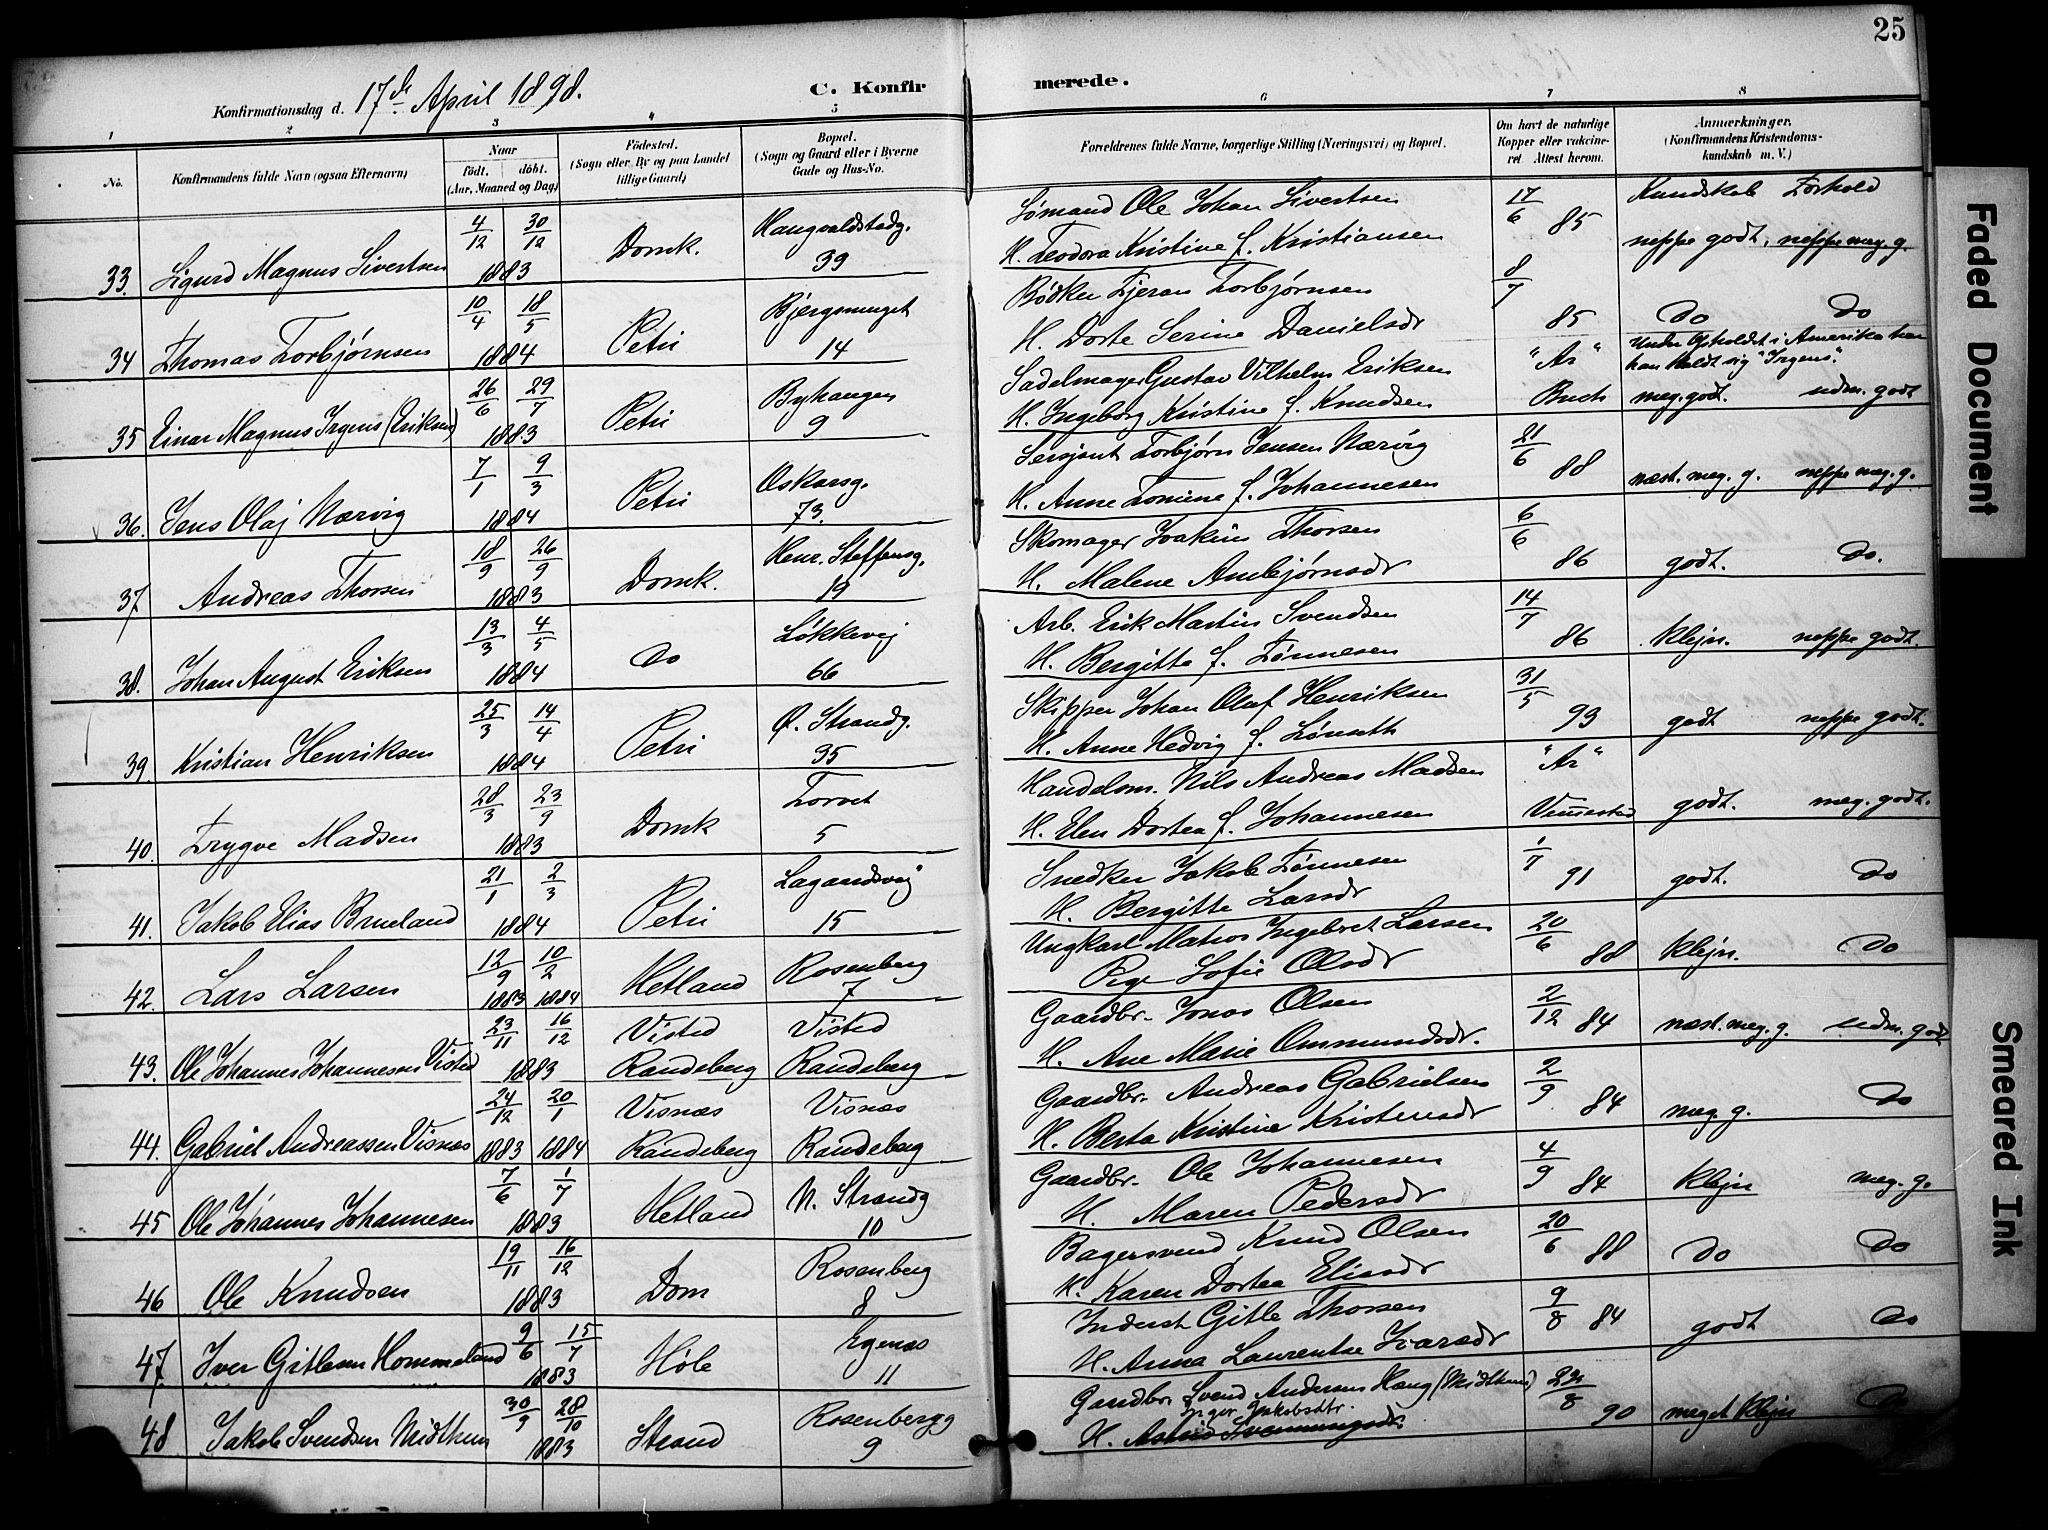 25
Konfirmationsdag d. 17de April 1898. C. Konfirmerede.
1 2 3 4 5 6 7 8
No. Konfirmandens fulde Navn (ogsaa Efternavn) Naar født. døbt. (Aar, Maaned og Dag) Fødested. (Sogn eller By og paa Landet tillige Gaard) Bopæl. (Sogn og Gaard eller i Byerne Gade og Hus-No. Forældrenes fulde Navne, borgerlige Stilling (Næringsvei) og Bopæl. Om havt de naturlige Kopper eller vakcineret. Attest herom. Anmærkninger. (Konfirmandens Kristendomskundskab m. V.)
Kundskab Forhold
33. Sigurd Magnus Sivertsen 4/12 30/12 1883 Domk. Haugvaldstadg. 39 Sømand Ole Johan Sivertsen 17/6 85 neppe godt, neppe meg. g.
H. Teodora Kristine f. Kristiansen
34 Thomas Torbjørnsen 10/4 18/5 1884 Petri Bjergsmuget 14 Bødker Tjeran Torbjørnsen 8/7 85 Do Do
H. Dorte Serine Danielsdr
35 Einar Magnus Irgens (Eriksen) 26/6 29/7 1883 Petri Byhaugen 9 Sadelmager Gustav Vilhelm Eriksen "Ar" Buch Under Opholdet i Amerika har han kaldt sig "Irgens". meg. godt. udm. godt
H. Ingeborg Kristine f. Knudsen
36. Jens Olaj Nærvig 7/1 9/3 1884 Petri Oskarsg. 73. Sersjant Torbjørn Jensen Nærvig 21/6 88 næst. meg. g. neppe meg. g.
H. Anne Tomine f. Johannesen
37 Andreas Thorsen 18/9 26/9 1883 Domk. Henr. Steffensg. 19 Skomager Joakim Thorsen 6/6 86 godt. Do.
H. Malene Ambjørnsdr
38. Johan August Eriksen 13/3 4/5 1884 Do Løkkevej 66 Arb. Erik Martin Svendsen 14/7 86 klejn. neppe godt.
H. Bergitte f. Tønnesen
39. Kristian Henriksen 25/3 14/4 1884 Petri Ø. Strandg. 35 Skipper Johan Olaf Henriksen 31/5 93 godt neppe godt.
H. Anne Hedvig f. Lønseth
40. Trygve Madsen 28/3 23/9 1883 Domk Torvet 5 Handelsm. Nils Andreas Madsen "Ar" godt. meg. godt.
H. Elen Dortea f. Johannesen
41. Jakob Elias Brueland 21/1 2/3 1884 Petri Lagaardsvej 15 Snedker Jakob Tønnesen 1/7 91 godt. Do
H. Bergitte Larsdr
42. Lars Larsen 12/9 1883 10/2 1884 Hetland Rosenberg 7 Ungkarl Matios Ingebret Larsen 20/6 88 klejn. Do
Pige Sofie Olsdr
43. Ole Johannes Johannessen Visted 23/11 16/12 1883 Visted Randeberg Visted Randeberg Gaardbr. Jonas Olsen 2/12 84 næst. meg. g. udm. godt
H. Ane Marie Ommundsdr.
44. Gabriel Andreassen Visnæs 24/12 1883 20/1 1884 Visnæs Randeberg Visnæs Randeberg Gaardbr. Andreas Gabrielsen 2/9 84 meg. g. Do
H. Berta Kristine Kristensdr
45 Ole Johannes Johannesen 7/6 1/7 1883 Hetland N. Strandg 10 Gaardbr. Ole Johannesen 4/9 84 klejn meg. g.
H. Maren Pedersdr
46 Ole Knudsen 19/11 16/12 1883 Dom Rosenberg 8 Bagersvend Knud Olsen 20/6 88 Do Do
H. Karen Dortea Eliasdr
47. Iver Gitlesen Hommeland 9/6 15/7 1883 Høle Egenæs 11 Inderst Gitle Thorsen 9/8 84 godt Do
H. Anna Laurentse Ivarsdr
48 Jakob Svendsen Midthun 30/9 28/10 1883 Strand Rosenbergg 9 Gaardbr. Svend Andersen Haug (Midthun) 22/8 90 meget klejn Do
Inger Jakobsdtr.
H.
Faded Document
Smeared Ink